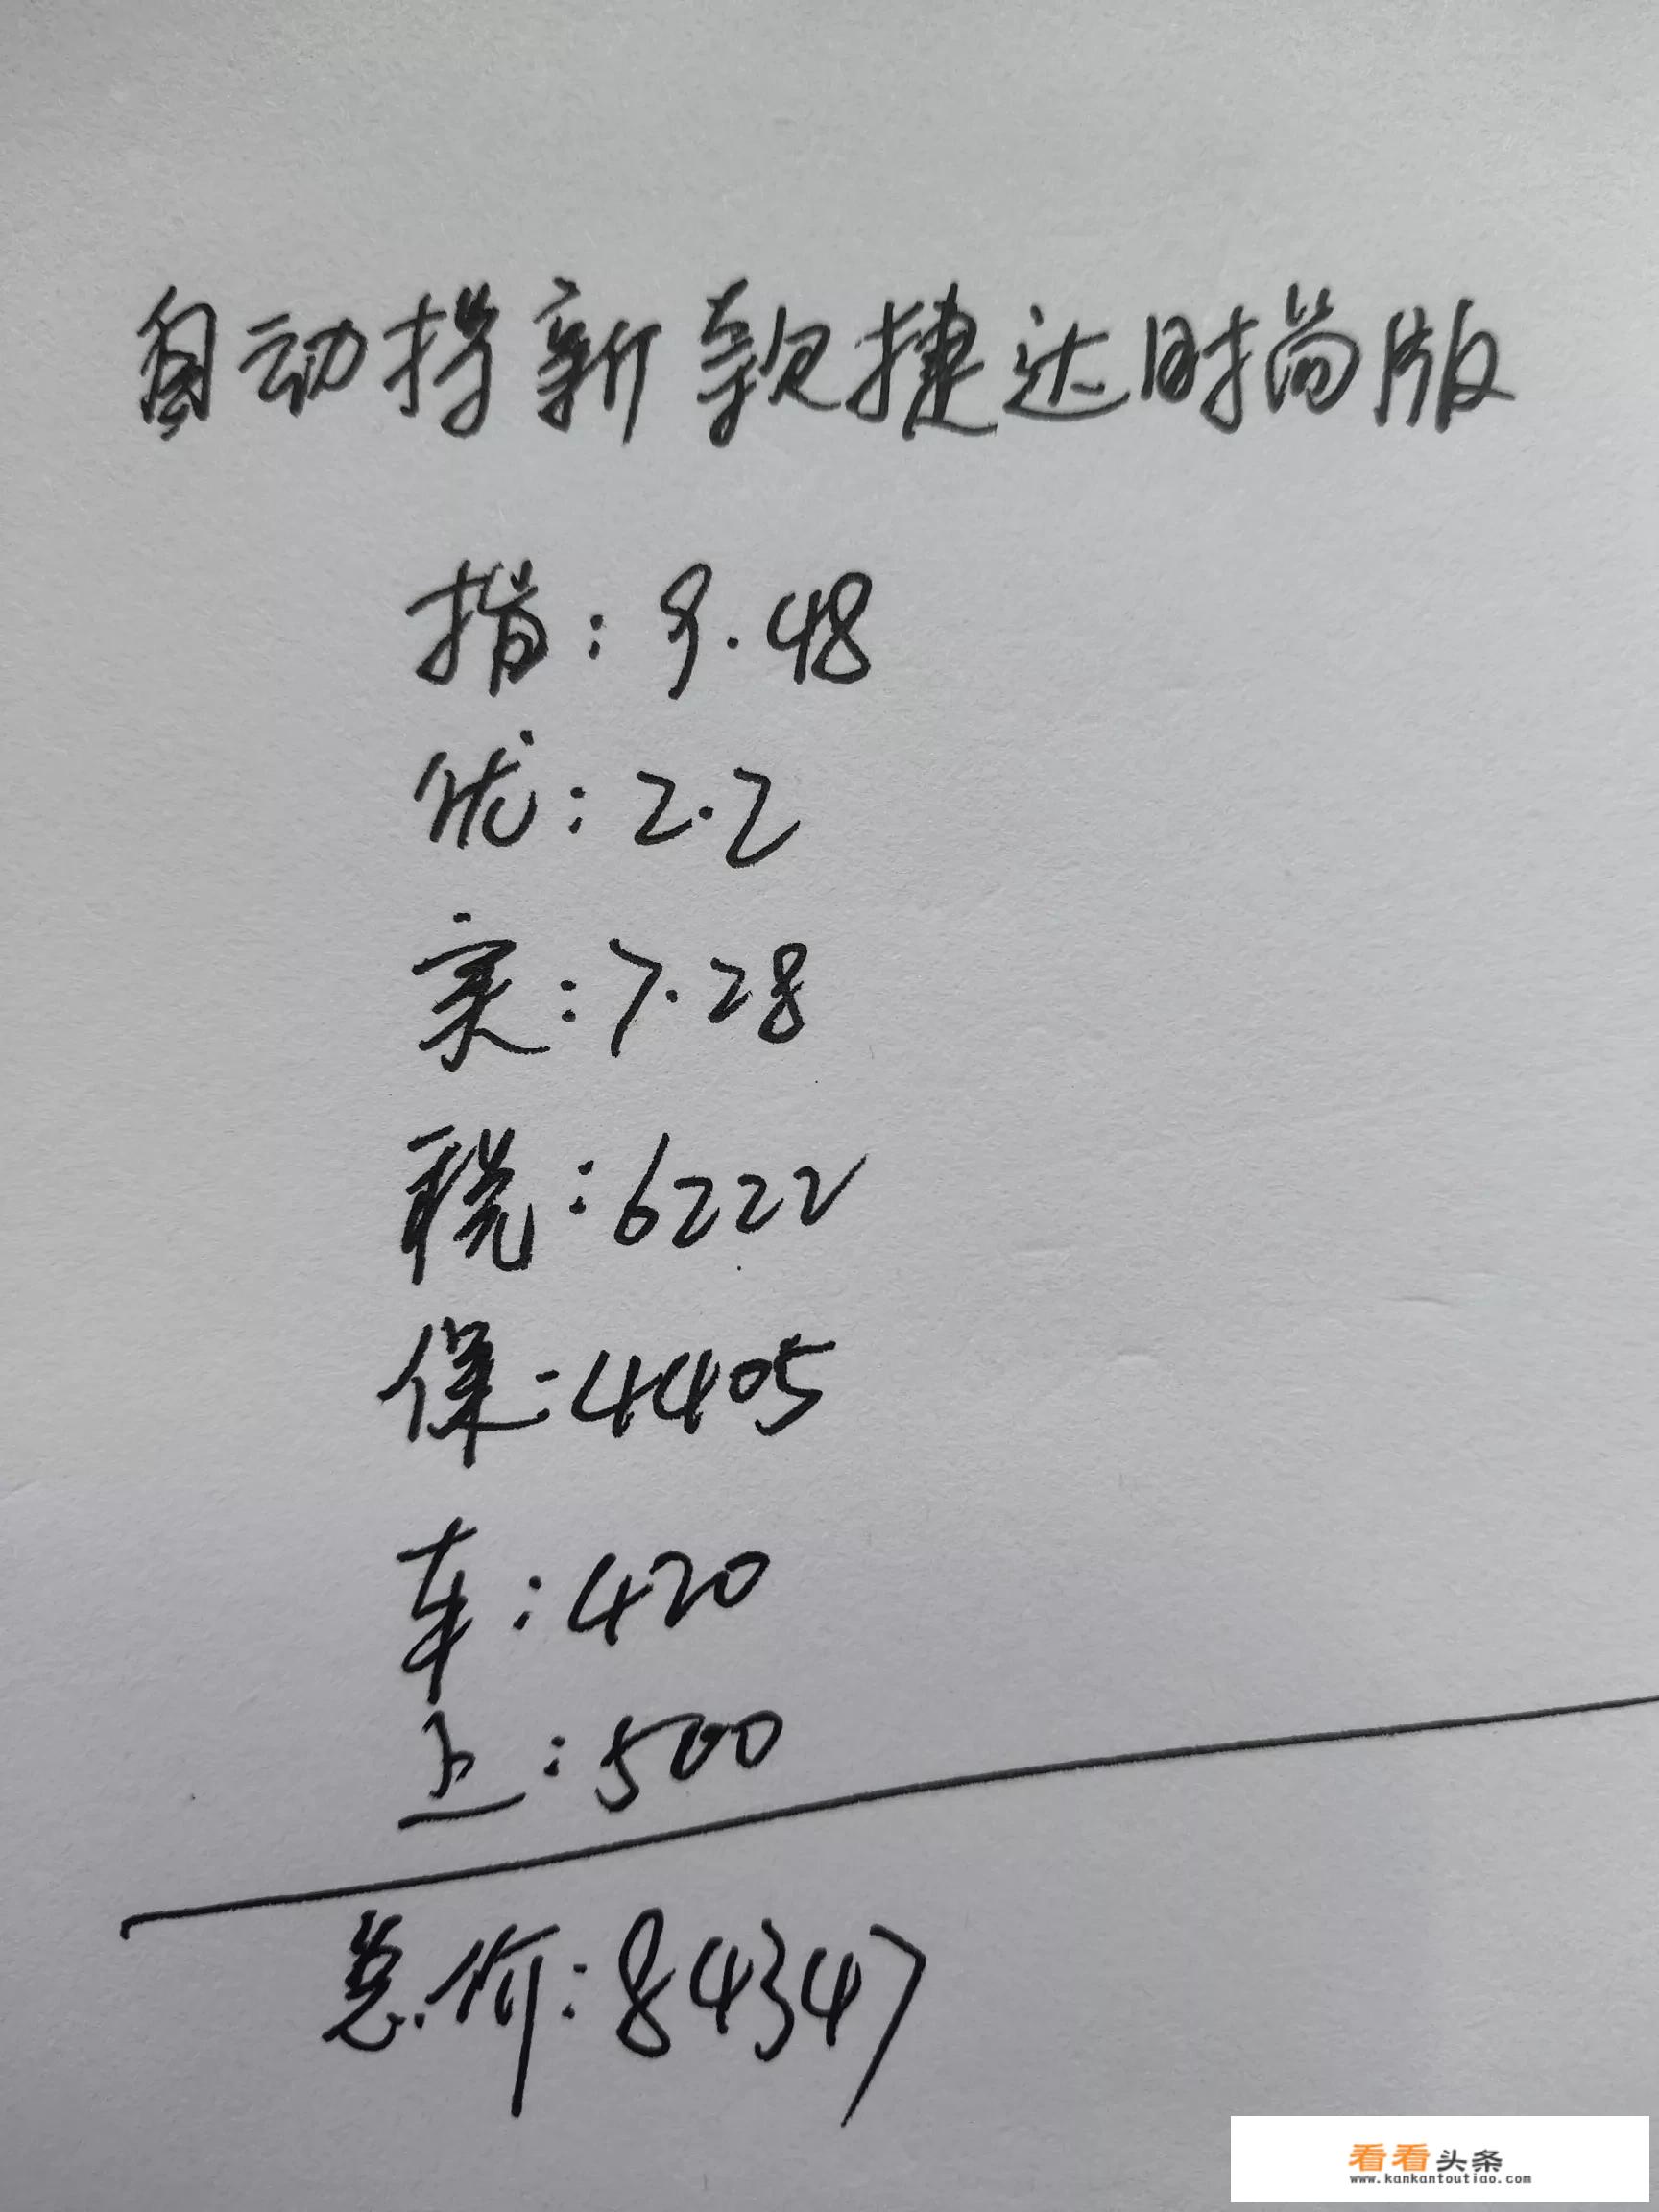 自动挡新款捷达时尚版
指:9.48
优:2.2
实:7.28
税:6222
保:4405
车:420
上:500
总价:84347
看看头条
www.kankantoutiao.com